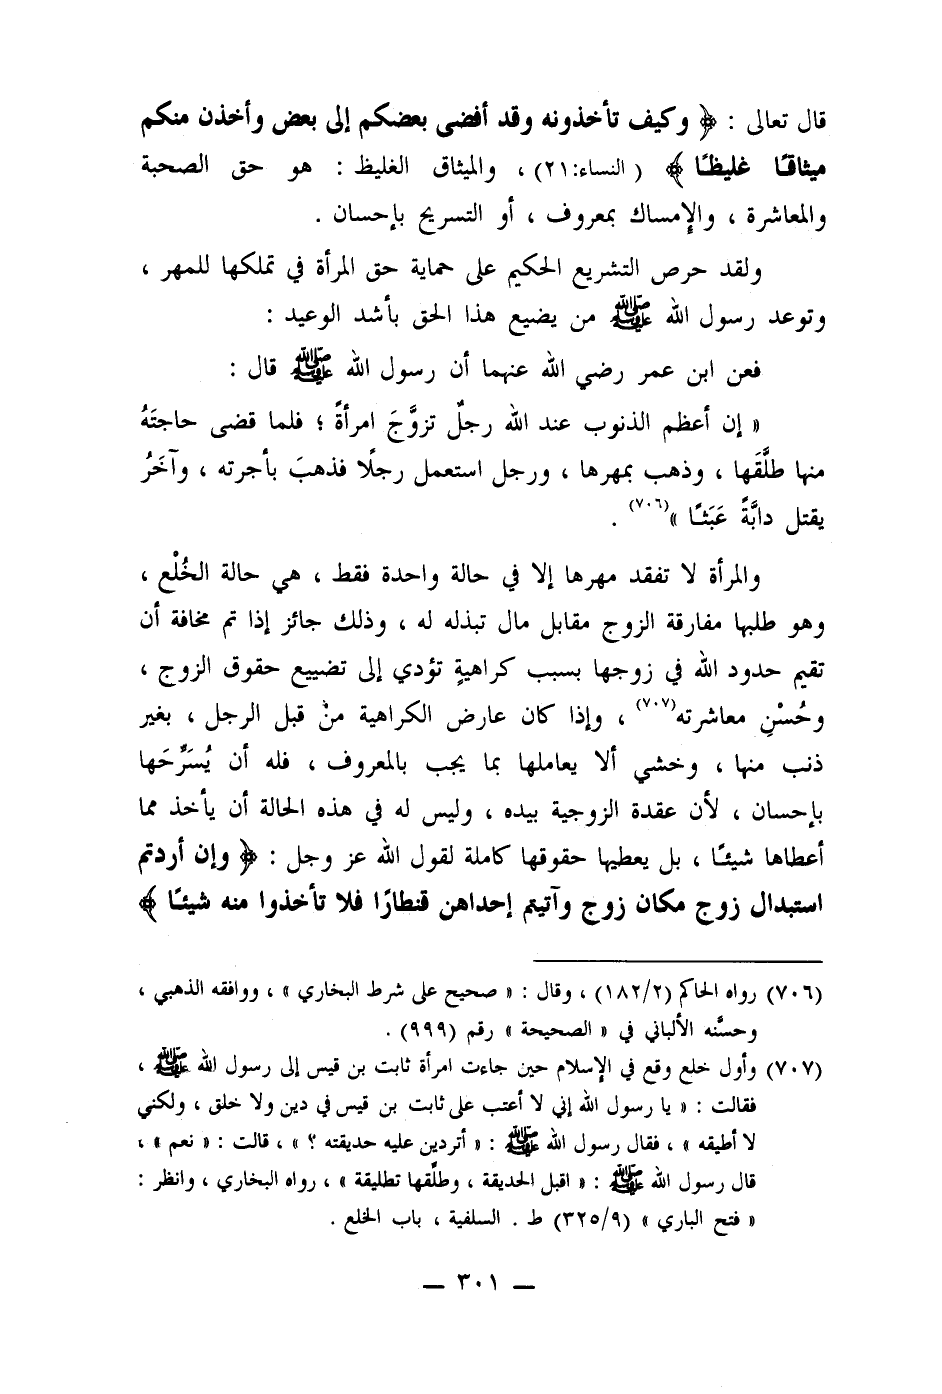 قال تعالى : ﴿ وكيف تأخذونه وقد أفضى بعضكم إلى بعض وأخذن منكم
ميثاقًا غليظًا ﴾ ( النساء:٢١) ، والميثاق الغليظ : هو حق الصحبة
والمعاشرة ، والإمساك بمعروف ، أو التسريح بإحسان .
ولقد حرص التشريع الحكيم على حماية حق المرأة في تملكها للمهر ،
وتوعد رسول الله ﷺ من يضيع هذا الحق بأشد الوعيد :
فعن ابن عمر رضي الله عنهما أن رسول الله ﷺ قال :
« إن أعظم الذنوب عند الله رجلٌ تزوَّجَ امرأةً ؛ فلما قضى حاجتَهُ
منها طلَّقَها ، وذهب بمهرها ، ورجل استعمل رجلًا فذهبَ بأجرته ، وآخَرُ
يقتل دابَّةً عَبَثًا »(٧٠٦) .
والمرأة لا تفقد مهرها إلا في حالة واحدة فقط ، هي حالة الخُلْع ،
وهو طلبها مفارقة الزوج مقابل مال تبذله له ، وذلك جائز إذا تم مخافة أن
تقيم حدود الله في زوجها بسبب كراهيةٍ تؤدي إلى تضييع حقوق الزوج ،
وحُسْنِ معاشرته(٧٠٧) ، وإذا كان عارض الكراهية من قبل الرجل ، بغير
ذنب منها ، وخشي ألا يعاملها بما يجب بالمعروف ، فله أن يُسَرِّحَها
بإحسان ، لأن عقدة الزوجية بيده ، وليس له في هذه الحالة أن يأخذ مما
أعطاها شيئًا ، بل يعطيها حقوقها كاملة لقول الله عز وجل : ﴿ وإن أردتم
استبدال زوج مكان زوج وآتيتم إحداهن قنطارًا فلا تأخذوا منه شيئًا ﴾
(٧٠٦) رواه الحاكم (١٨٢/٢) ، وقال : « صحيح على شرط البخاري » ، ووافقه الذهبي ،
وحسَّنه الألباني في « الصحيحة » رقم (٩٩٩) .
(٧٠٧) وأول خلع وقع في الإسلام حين جاءت امرأة ثابت بن قيس إلى رسول الله ﷺ ،
فقالت : « يا رسول الله إني لا أعتب على ثابت بن قيس في دين ولا خلق ، ولكني
لا أطيقه » ، فقال رسول الله ﷺ : « أتردين عليه حديقته ؟ » ، قالت : « نعم » ،
قال رسول الله ﷺ : « اقبل الحديقة ، وطلِّقها تطليقة » ، رواه البخاري ، وانظر :
« فتح الباري » (٣٢٥/٩) ط . السلفية ، باب الخلع .
— ٣٠١ —